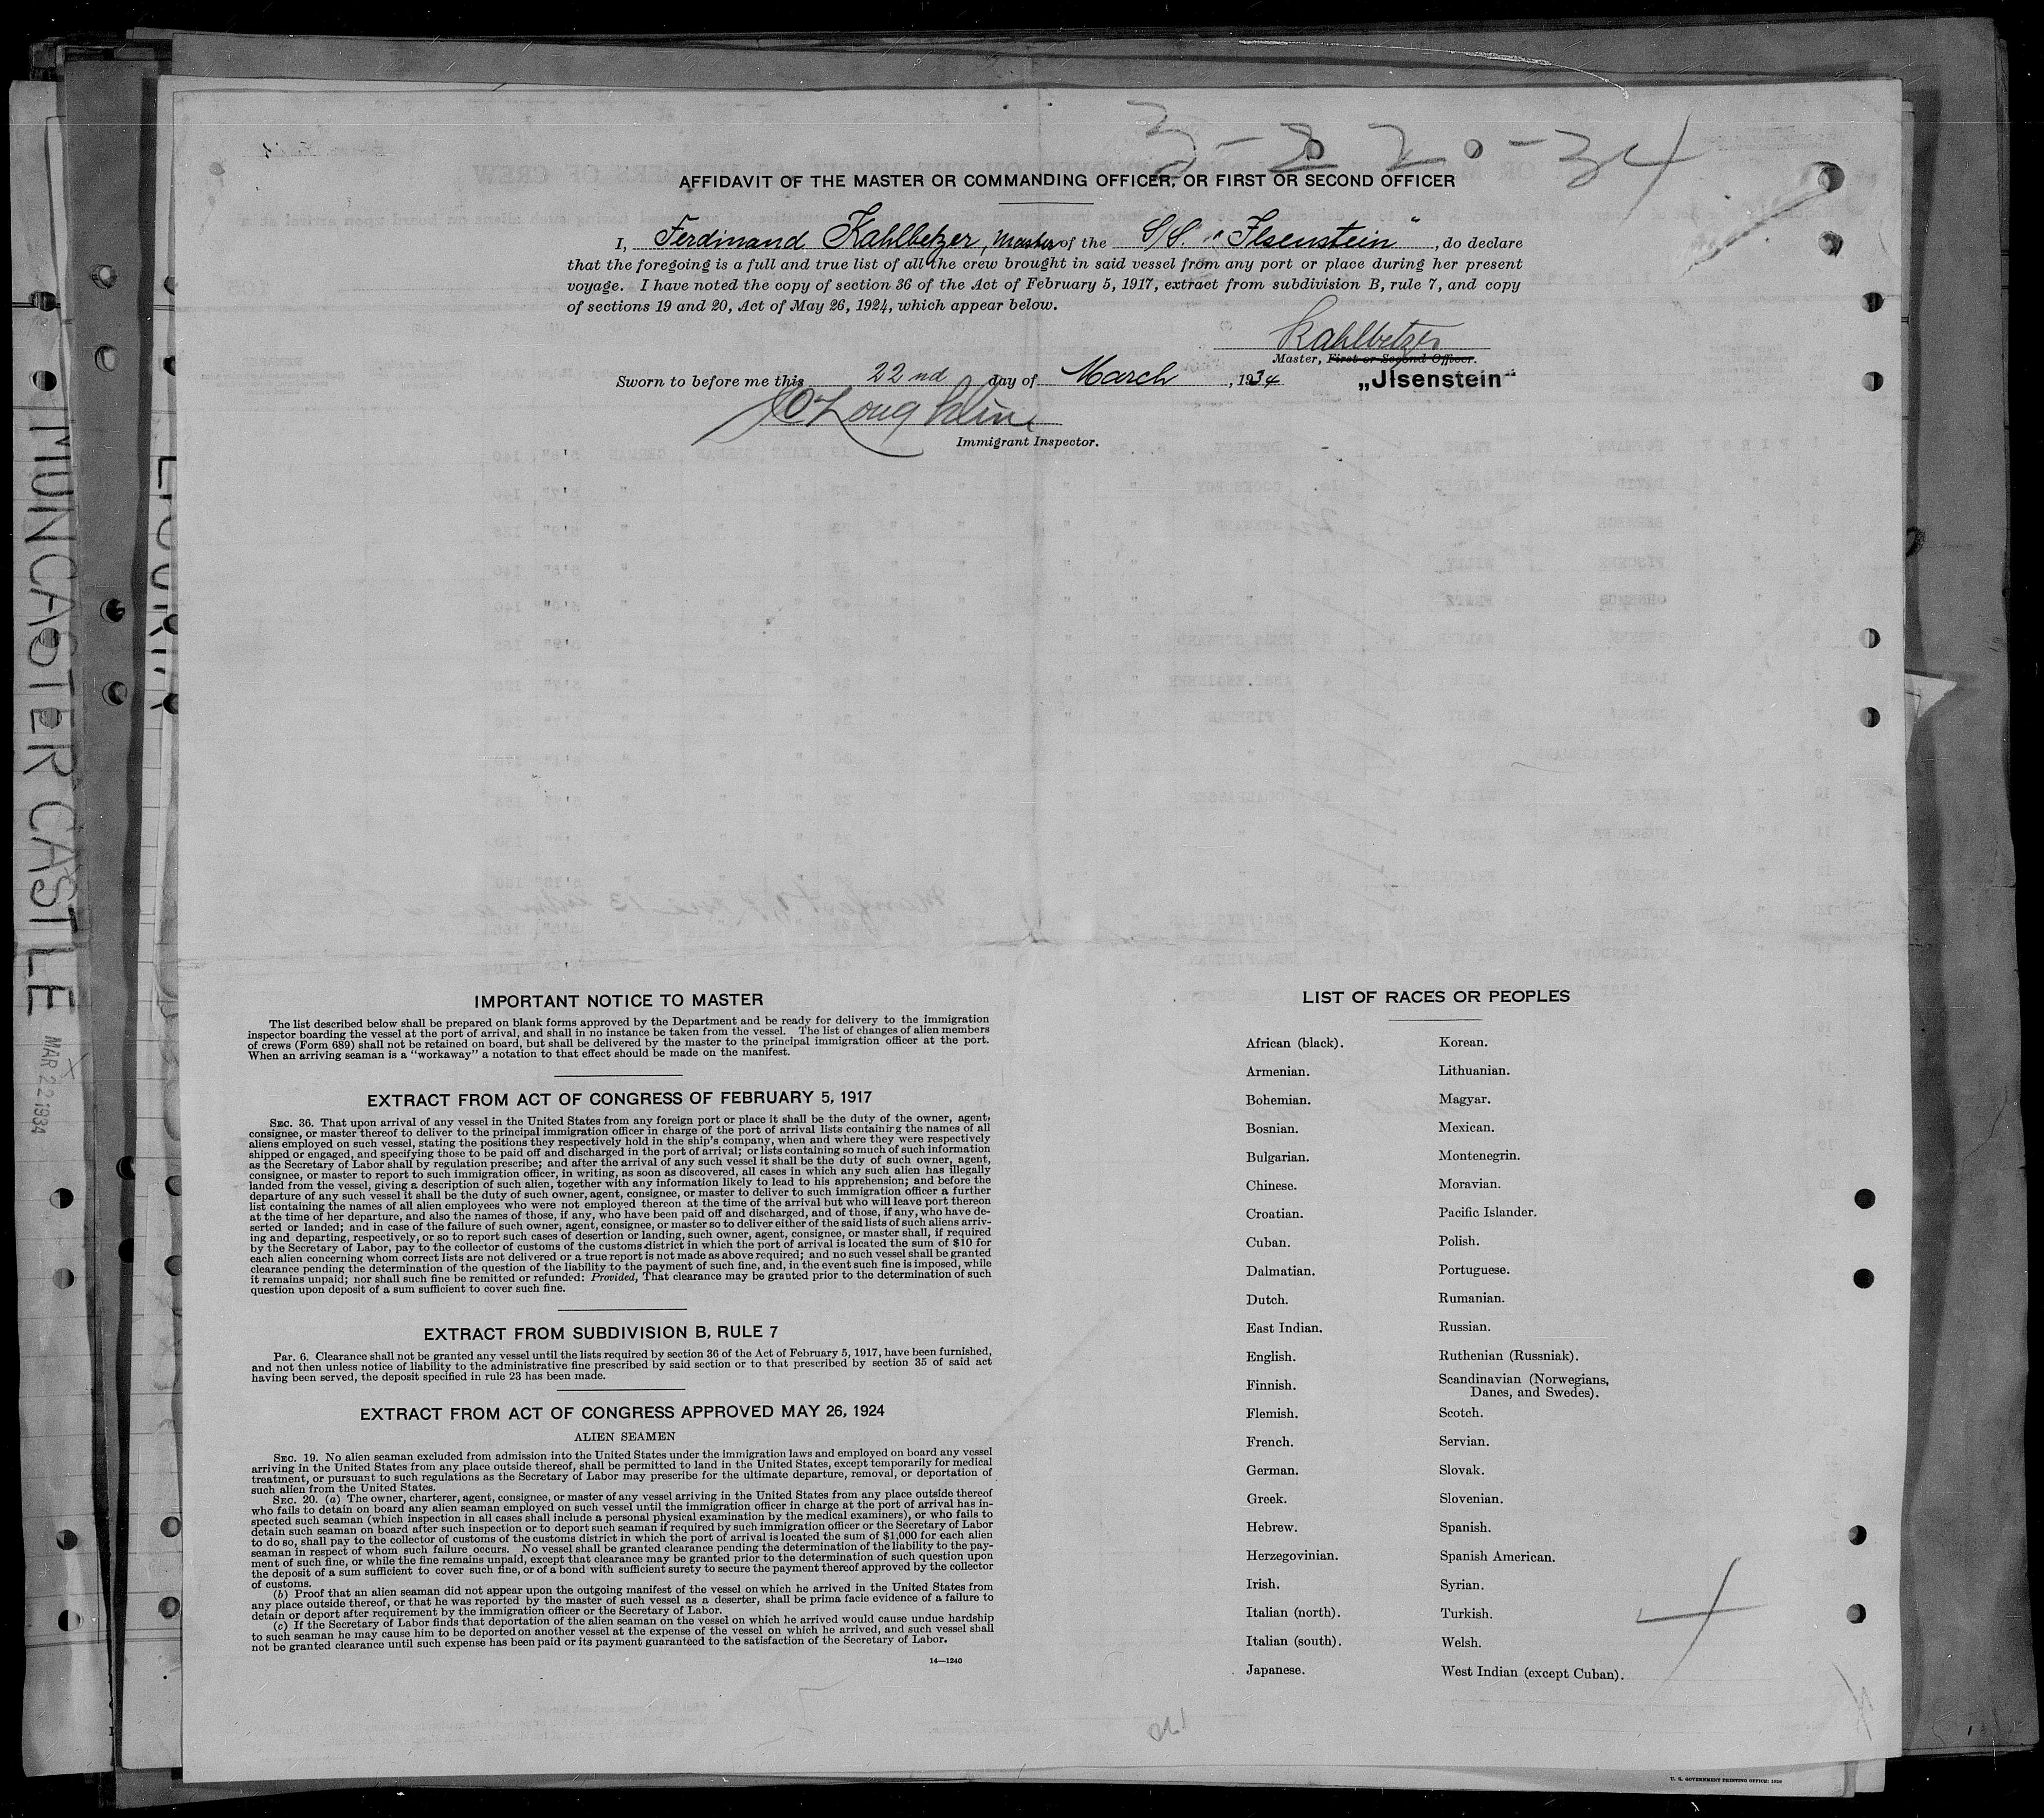 3-22-34
AFFIDAVIT OF THE MASTER OR COMMANDING OFFICER, OR FIRST OR SECOND OFFICER
I, Ferdinand Kahlbetzer, Master of the S/S. "Ilsenstein", do declare
that the foregoing is a full and true list of all the crew brought in said vessel from any port or place during her present
voyage. I have noted the copy of section 36 of the Act of February 5, 1917, extract from subdivision B, rule 7, and copy
of sections 19 and 20, Act of May 26, 1924, which appear below.
Kahlbetzer
Master, First or Second Officer.
Sworn to before me this 22nd day of March, 1934
„Jlsenstein“
Immigrant Inspector.
MUNCASTER CASTLE
MAR 22 1934
IMPORTANT NOTICE TO MASTER
The list described below shall be prepared on blank forms approved by the Department and be ready for delivery to the immigration
inspector boarding the vessel at the port of arrival, and shall in no instance be taken from the vessel. The list of changes of alien members
of crews (Form 689) shall not be retained on board, but shall be delivered by the master to the principal immigration officer at the port.
When an arriving seaman is a "workaway" a notation to that effect should be made on the manifest.
EXTRACT FROM ACT OF CONGRESS OF FEBRUARY 5, 1917
SEC. 36. That upon arrival of any vessel in the United States from any foreign port or place it shall be the duty of the owner, agent,
consignee, or master thereof to deliver to the principal immigration officer in charge of the port of arrival lists containing the names of all
aliens employed on such vessel, stating the positions they respectively hold in the ship's company, when and where they were respectively
shipped or engaged, and specifying those to be paid off and discharged in the port of arrival; or lists containing so much of such information
as the Secretary of Labor shall by regulation prescribe; and after the arrival of any such vessel it shall be the duty of such owner, agent,
consignee, or master to report to such immigration officer, in writing, as soon as discovered, all cases in which any such alien has illegally
landed from the vessel, giving a description of such alien, together with any information likely to lead to his apprehension; and before the
departure of any such vessel it shall be the duty of such owner, agent, consignee, or master to deliver to such immigration officer a further
list containing the names of all alien employees who were not employed thereon at the time of the arrival but who will leave port thereon
at the time of her departure, and also the names of those, if any, who have been paid off and discharged, and of those, if any, who have de-
serted or landed; and in case of the failure of such owner, agent, consignee, or master so to deliver either of the said lists of such aliens arriv-
ing and departing, respectively, or so to report such cases of desertion or landing, such owner, agent, consignee, or master shall, if required
by the Secretary of Labor, pay to the collector of customs of the customs district in which the port of arrival is located the sum of $10 for
each alien concerning whom correct lists are not delivered or a true report is not made as above required; and no such vessel shall be granted
clearance pending the determination of the question of the liability to the payment of such fine, and, in the event such fine is imposed, while
it remains unpaid; nor shall such fine be remitted or refunded: Provided, That clearance may be granted prior to the determination of such
question upon deposit of a sum sufficient to cover such fine.
EXTRACT FROM SUBDIVISION B, RULE 7
Par. 6. Clearance shall not be granted any vessel until the lists required by section 36 of the Act of February 5, 1917, have been furnished,
and not then unless notice of liability to the administrative fine prescribed by said section or to that prescribed by section 35 of said act
having been served, the deposit specified in rule 23 has been made.
EXTRACT FROM ACT OF CONGRESS APPROVED MAY 26, 1924
ALIEN SEAMEN
SEC. 19. No alien seaman excluded from admission into the United States under the immigration laws and employed on board any vessel
arriving in the United States from any place outside thereof, shall be permitted to land in the United States, except temporarily for medical
treatment, or pursuant to such regulations as the Secretary of Labor may prescribe for the ultimate departure, removal, or deportation of
such alien from the United States.
SEC. 20. (a) The owner, charterer, agent, consignee, or master of any vessel arriving in the United States from any place outside thereof
who fails to detain on board any alien seaman employed on such vessel until the immigration officer in charge at the port of arrival has in-
spected such seaman (which inspection in all cases shall include a personal physical examination by the medical examiners), or who fails to
detain such seaman on board after such inspection or to deport such seaman if required by such immigration officer or the Secretary of Labor
to do so, shall pay to the collector of customs of the customs district in which the port of arrival is located the sum of $1,000 for each alien
seaman in respect of whom such failure occurs. No vessel shall be granted clearance pending the determination of the liability to the pay-
ment of such fine, or while the fine remains unpaid, except that clearance may be granted prior to the determination of such question upon
the deposit of a sum sufficient to cover such fine, or of a bond with sufficient surety to secure the payment thereof approved by the collector
of customs.
(b) Proof that an alien seaman did not appear upon the outgoing manifest of the vessel on which he arrived in the United States from
any place outside thereof, or that he was reported by the master of such vessel as a deserter, shall be prima facie evidence of a failure to
detain or deport after requirement by the immigration officer or the Secretary of Labor.
(c) If the Secretary of Labor finds that deportation of the alien seaman on the vessel on which he arrived would cause undue hardship
to such seaman he may cause him to be deported on another vessel at the expense of the vessel on which he arrived, and such vessel shall
not be granted clearance until such expense has been paid or its payment guaranteed to the satisfaction of the Secretary of Labor.
14—1240
LIST OF RACES OR PEOPLES
African (black).
Armenian.
Bohemian.
Bosnian.
Bulgarian.
Chinese.
Croatian.
Cuban.
Dalmatian.
Dutch.
East Indian.
English.
Finnish.
Flemish.
French.
German.
Greek.
Hebrew.
Herzegovinian.
Irish.
Italian (north).
Italian (south).
Japanese.
Korean.
Lithuanian.
Magyar.
Mexican.
Montenegrin.
Moravian.
Pacific Islander.
Polish.
Portuguese.
Rumanian.
Russian.
Ruthenian (Russniak).
Scandinavian (Norwegians,
Danes, and Swedes).
Scotch.
Servian.
Slovak.
Slovenian.
Spanish.
Spanish American.
Syrian.
Turkish.
Welsh.
West Indian (except Cuban).
U. S. GOVERNMENT PRINTING OFFICE: 1929